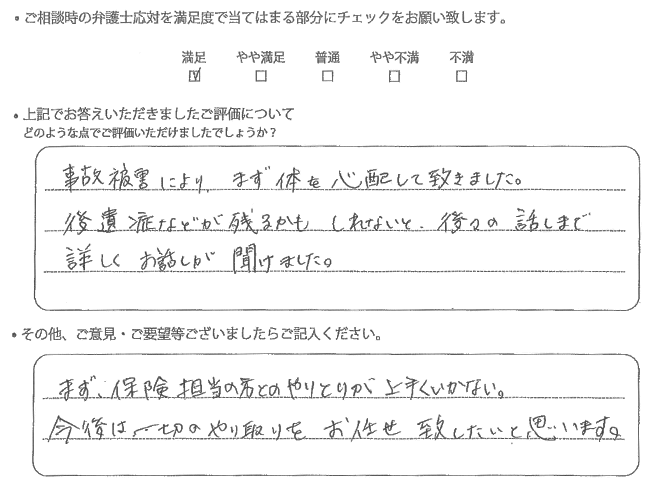 ・ご相談時の弁護士応対を満足度で当てはまる部分にチェックをお願い致します。
満足 やや満足 普通 やや不満 不満
・上記でお答えいただきましたご評価について
どのような点でご評価いただけましたでしょうか？
事故被害により、まず体を心配して致きました。
後遺症などが残るかもしれないと、後々の話しまで
詳しくお話しが聞けました。
・その他、ご意見・ご要望等ございましたらご記入ください。
まず、保険担当の方とのやりとりが上手くいかない。
今後は、一切のやり取りをお任せ致したいと思います。